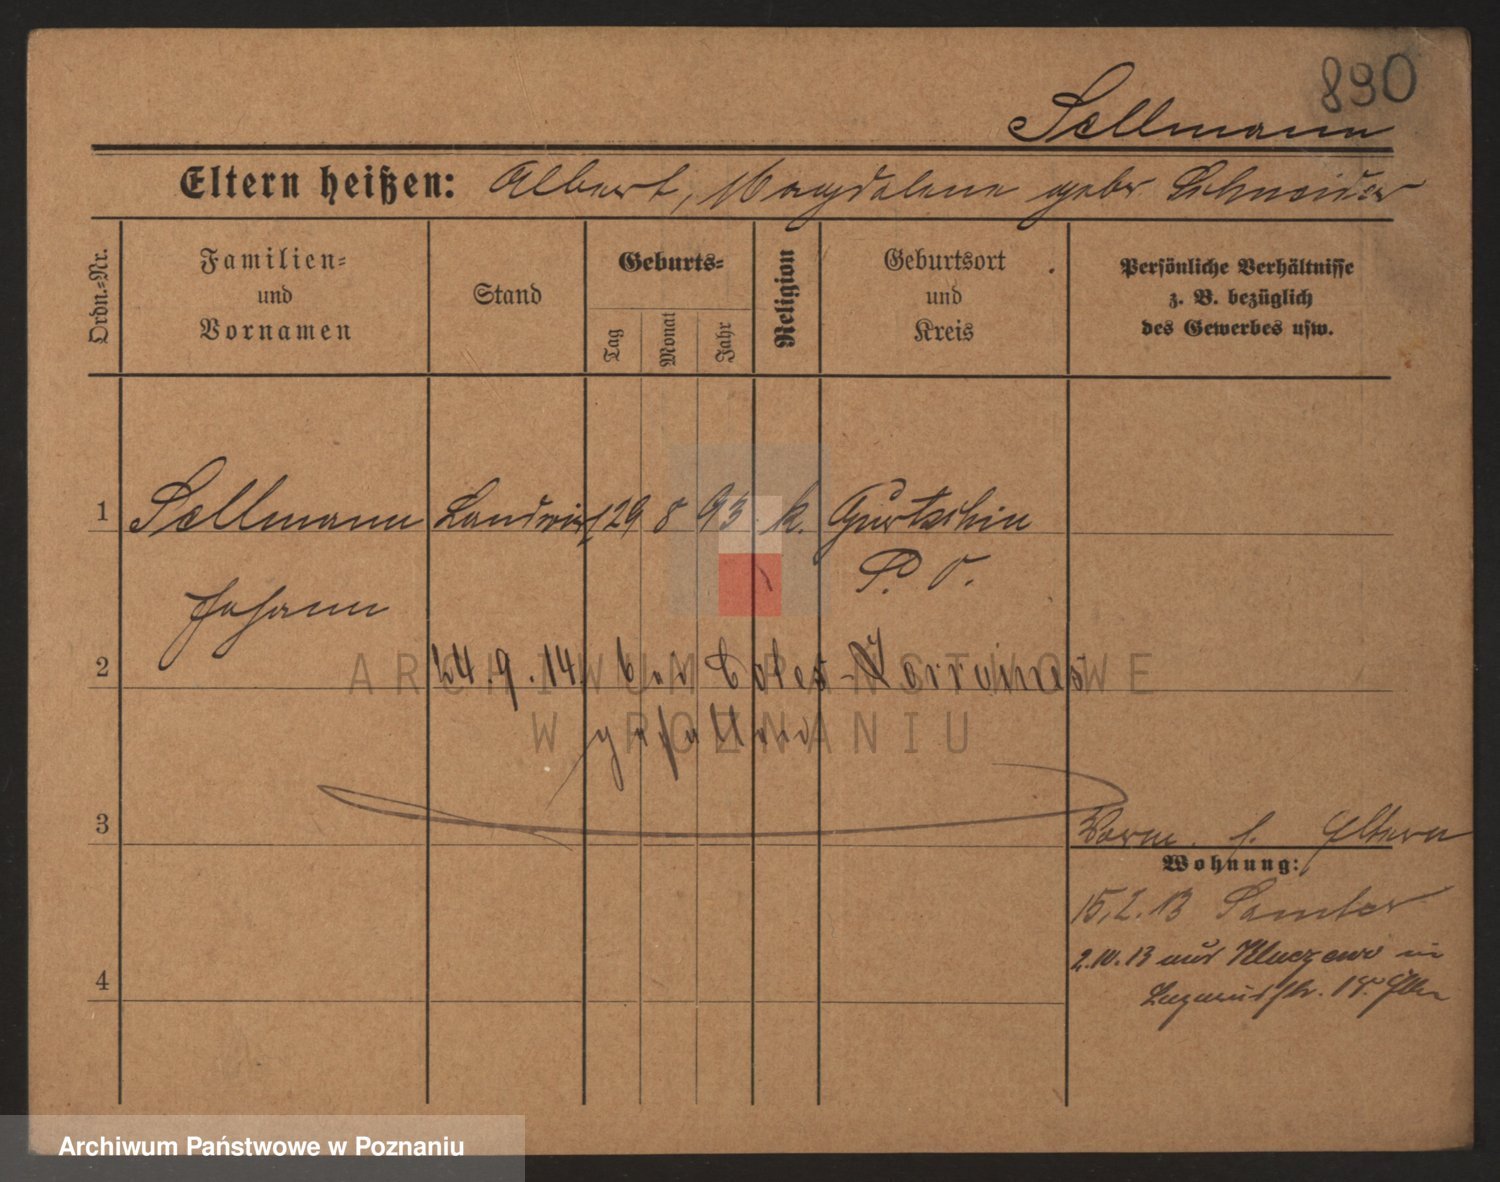 890
Sellmann
Eltern heißen: Albert, Magdalene gebr Schneider
Ordn.=Nr.
Familien=
und
Vornamen
Stand
Geburts=
Tag
Monat
Jahr
Religion
Geburtsort
und
Kreis
Persönliche Verhältnisse
z. B. bezüglich
des Gewerbes usw.
1 Sellmann Landwirt 29 8 93 k. Gurtschin
P. O.
Johann
2 24.9.14. bei Cotes-Lorraines
gefallen
3
Eltern
Wohnung:
15.2.13 Samter
2.10.13 aus in
4 Lazarusstr.
ARCHIWUM PAŃSTWOWE
W POZNANIU
Archiwum Państwowe w Poznaniu